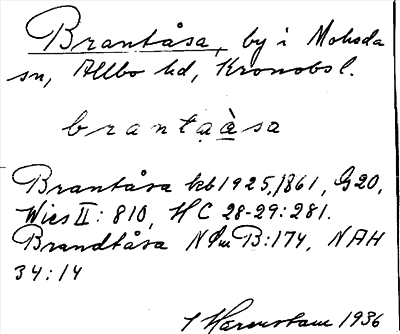 Brantåsa, by i Moheda
sn, Allbo hd, Kronobsl.
brantạ̀sa
Brantåsa kb 1925, 1861, G20,
Wies II: 810, HC 28-29: 281.
Brandtåsa N B: 174, NAH
34: 14
1936